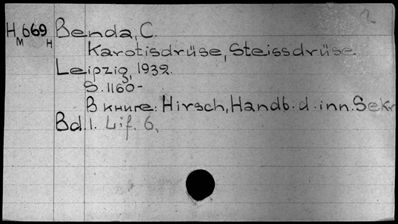 H 669 Benda, C.
M H
Karotisdrüse, Steissdrüse.
Leipzig, 1932.
S. 1160-
В книге: Hirsch, Handb. d. inn. Sekr
Bd. 1. Lif. 6.